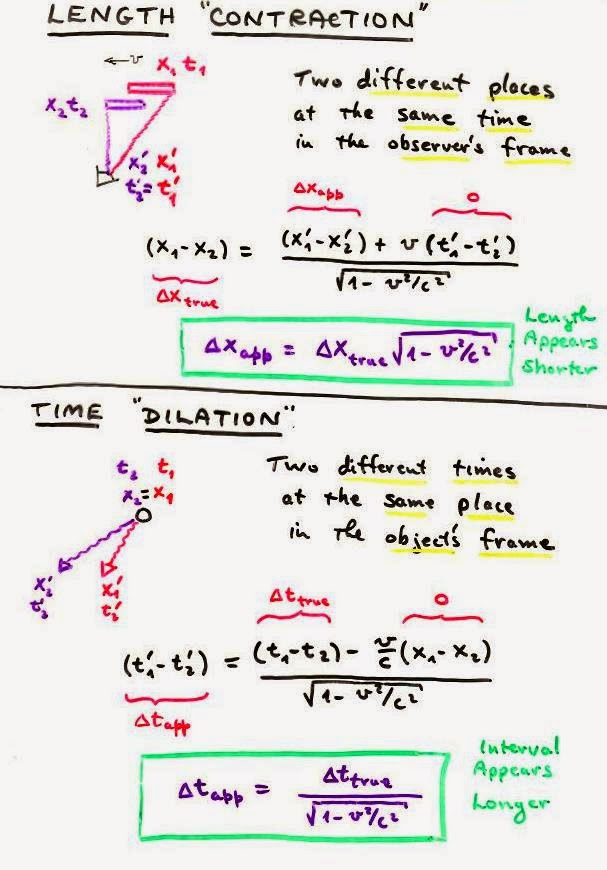 LENGTH "CONTRACTION"
← v x₁ t₁
x₂ t₂
x₂' x₁'
t₂' = t₁'
Two different places
at the same time
in the observer's frame
Δx app 0
(x₁-x₂) = (x₁'-x₂') + v (t₁'-t₂')
√1 - v²/c²
Δx true
Δx app = Δx true √1 - v²/c²
Length
Appears
Shorter
TIME "DILATION"
t₂ t₁
x₂ = x₁
x₂' x₁'
t₂' t₂'
Two different times
at the same place
in the object's frame
Δt true 0
(t₁'-t₂') = (t₁-t₂) - v/c (x₁-x₂)
√1 - v²/c²
Δt app
Δt app = Δt true
√1 - v²/c²
Interval
Appears
Longer